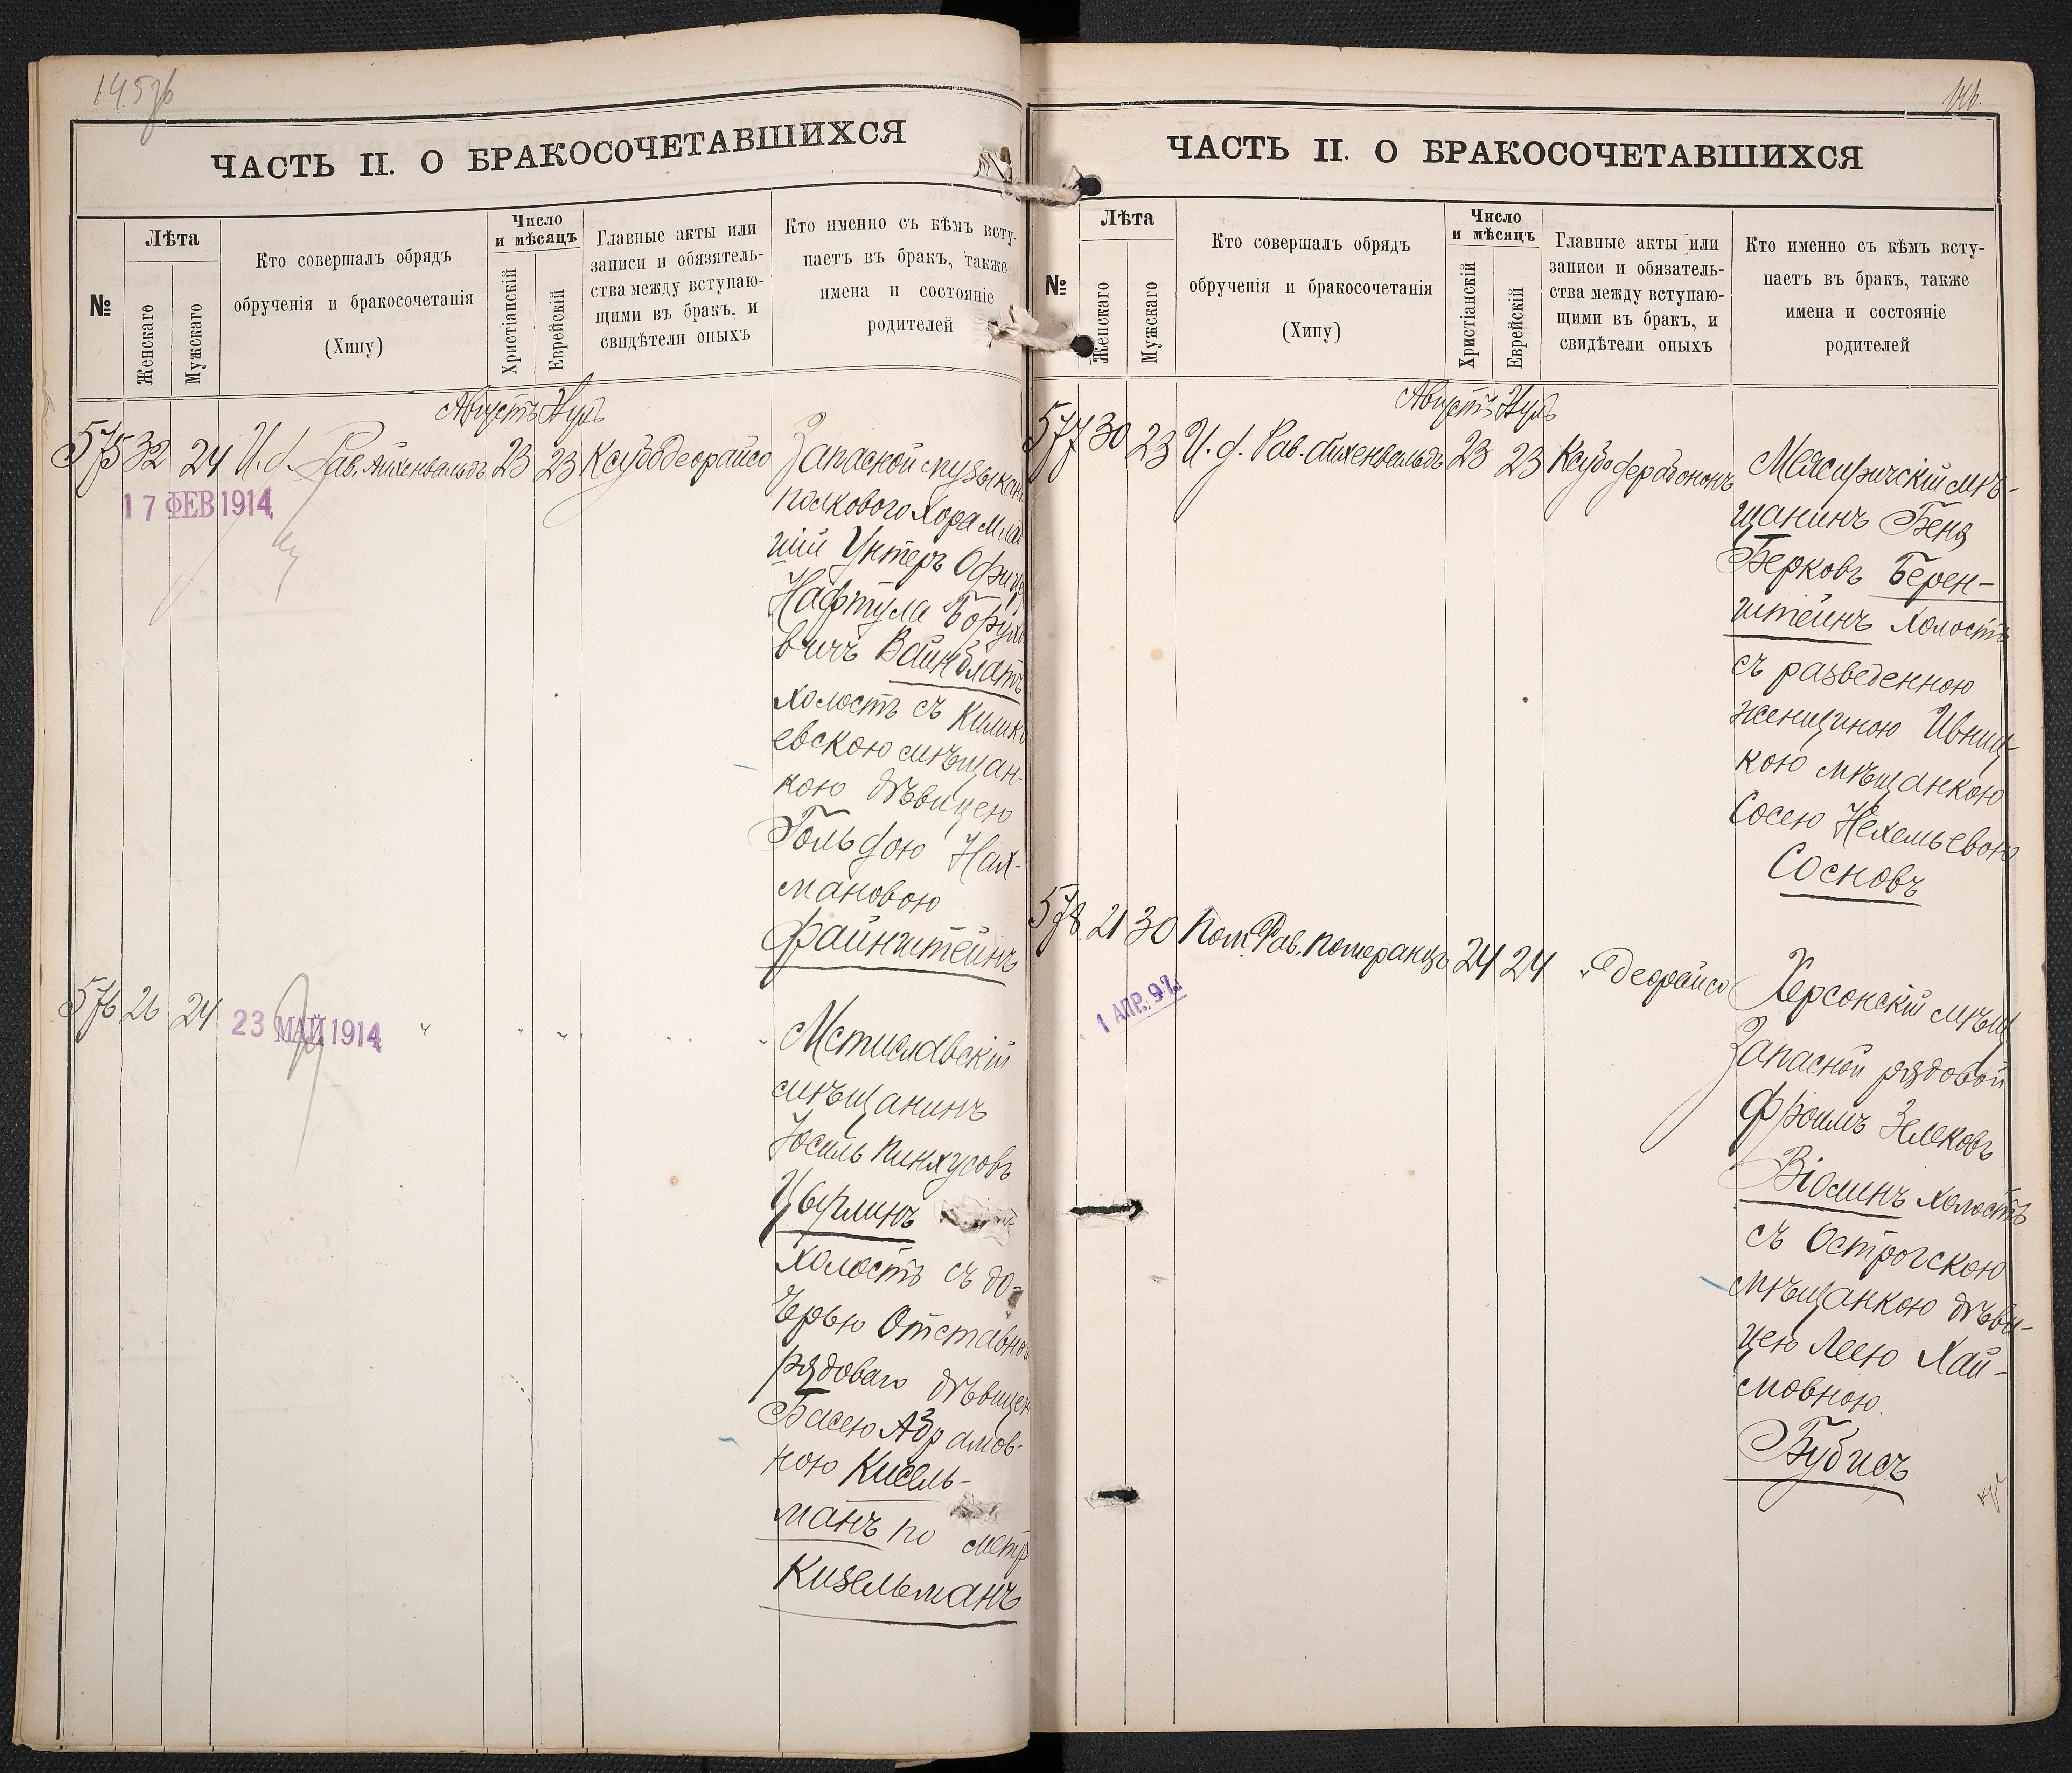 ЧАСТЬ II. О БРАКОСОЧЕТАВШИХСЯ
№
Лѣта
Женскаго
Мужскаго
Кто совершалъ обрядъ
обрученія и бракосочетанія
(Хипу)
Число
и мѣсяцъ
Христіанскій
Еврейскій
Главные акты или
записи и обязатель-
ства между вступаю-
щими въ бракъ, и
свидѣтели оныхъ
Кто именно съ кѣмъ всту-
паетъ въ бракъ, также
имена и состояніе
родителей
Августъ
575 32 24 И. д. Рав. Айхенвальдъ 23 23 Ксубо деорайсо
17 ФЕВ 1914
Запасной музыкан
полкового хора мла
шій Унтеръ Офице
Нафтула Борухо
вичъ Вайнблатъ
холостъ съ Килик
евскою мѣщан-
кою дѣвицею
Гольдою Нах-
мановою
Файнштейнъ
576 26 24
23 МАЙ 1914
Мстиславскій
мѣщанинъ
Іосиль Пинхусовъ
Цырлинъ
холостъ съ до-
черью Отставно
рядоваго дѣвицею
Басею Абрамов-
ною Кисель-
манъ по метр
Кизельманъ
146.
ЧАСТЬ II. О БРАКОСОЧЕТАВШИХСЯ
№
Лѣта
Женскаго
Мужскаго
Кто совершалъ обрядъ
обрученія и бракосочетанія
(Хипу)
Число
и мѣсяцъ
Христіанскій
Еврейскій
Главные акты или
записи и обязатель-
ства между вступаю-
щими въ бракъ, и
свидѣтели оныхъ
Кто именно съ кѣмъ всту-
паетъ въ бракъ, также
имена и состояніе
родителей
Августъ
577 30 23 И. д. Рав. Айхенвальдъ 23 23 Ксубо дерабононъ
Межиричскій мѣ-
щанинъ Беня
Берковъ Берен-
штейнъ холостъ
съ разведенною
женщиною Ивниц
кою мѣщанкою
Сосею Нехемьевою
Сосновъ
578 21 30 Пом. Рав. Померанцъ 24 24 " деорайсо
1 АПР. 97
Херсонскій мѣщ
Запасной рядовой
Фроимъ Зелковъ
Віолинъ холостъ
съ Острогскою
мѣщанкою дѣви-
цею Леею Хаи-
мовною
Бубисъ